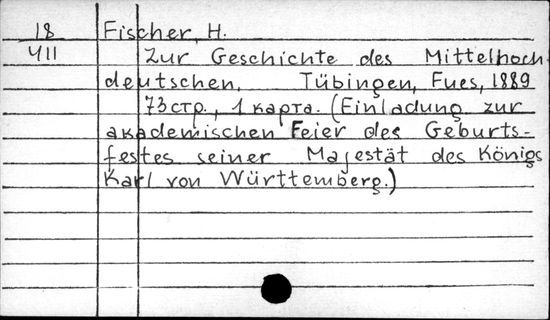 18 Fischer, H.
411 Zur Geschichte des Mittelhoch-
deutschen. Tübingen, Fues, 1889
73 стр., 1 карта. (Einladung zur
akademischen Feier des Geburts-
festes seiner Majestät des Königs
Karl von Württemberg.)